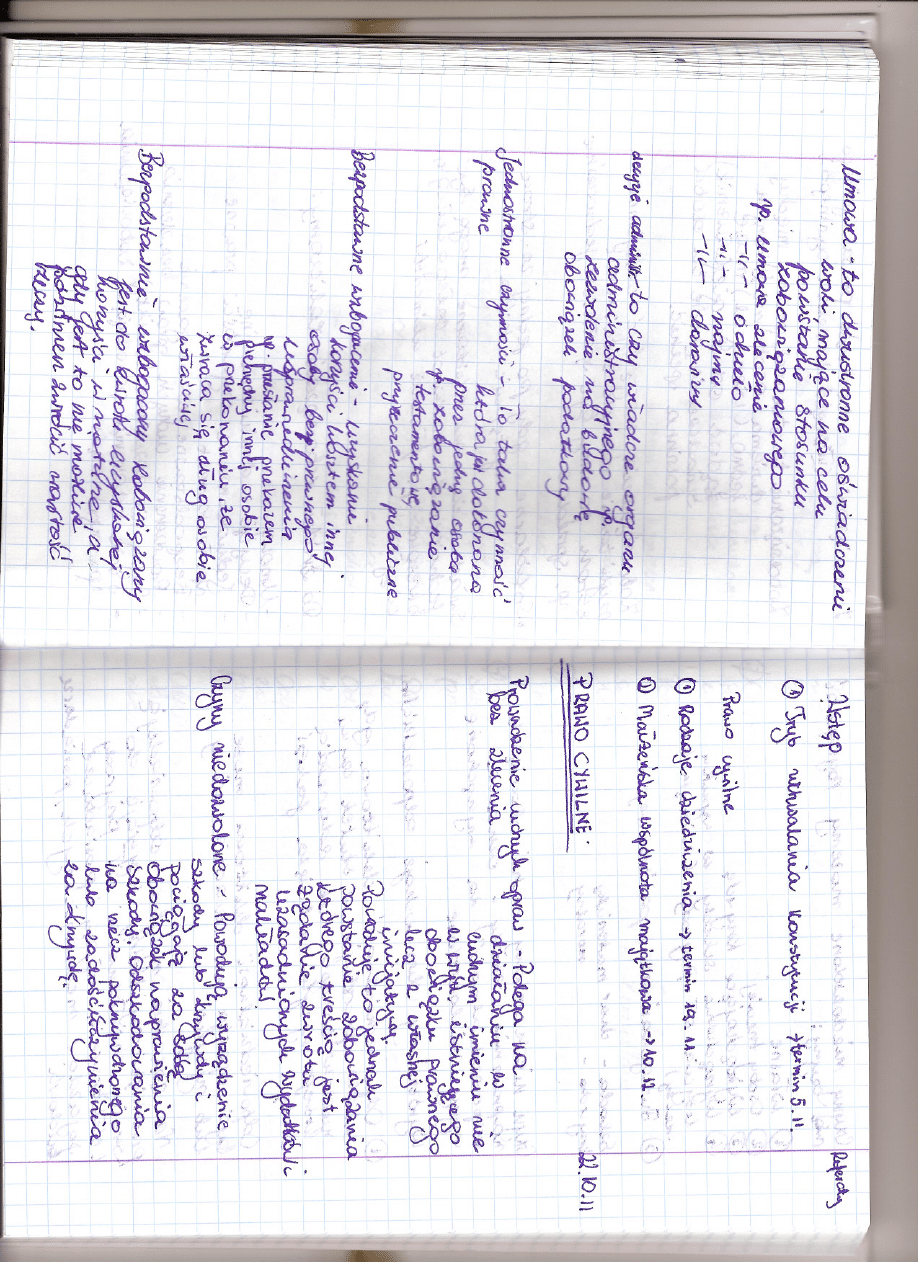 Umowa - to dwustronne oświadczenie
woli mające na celu
powstanie stosunku
zobowiązaniowego
np. umowa zlecenie
-||- o dzieło
-||- najmu
-||- darowizny
decyzje administr. to czy władcze organu
administracyjnego np.
zezwolenie na budowę
obowiązek podatkowy
Jednostronne czynności - to taka czynność
prawne która jest dokonana
przez jedną osobę
np. zobowiązanie
testamentowe
przyrzeczenie publiczne
Bezpodstawne wzbogacenie - uzyskanie
korzyści kosztem innej
osoby bez prawnego
usprawiedliwienia
np. przesłanie przekazem
pieniędzy innej osobie
w przekonaniu, że
zwraca się dług osobie
właściwej
Bezpodstawnie wzbogacony zobowiązany
jest do zwrotu uzyskanej
korzyści w naturze, a
gdy jest to nie możliwe
powinien zwrócić wartość
rzeczy.
Wstęp Referaty
① Tryb uchwalania Konstytucji → termin 5.11.
Prawo cywilne
① Rodzaje dziedziczenia → termin 19.11.
① Małżeńska wspólnota majątkowa → 10.12.
PRAWO CYWILNE 22.10.11
Prowadzenie cudzych spraw - Polega na
bez zlecenia działaniu w
cudzym imieniu nie
w wyk. istniejącego
obowiązku prawnego
lecz z własnej
inicjatywy.
Powoduje to jednak
powstanie zobowiązania
którego treścią jest
żądanie zwrotu
uzasadnionych wydatków i
nakładów
Czyny niedozwolone - Powodują wyrządzenie
szkody lub krzywdy i
pociągają za sobą
obowiązek naprawienia
szkody. Odszkodowania
na rzecz pokrzywdzonego
lub zadośćuczynienia
za krzywdę.